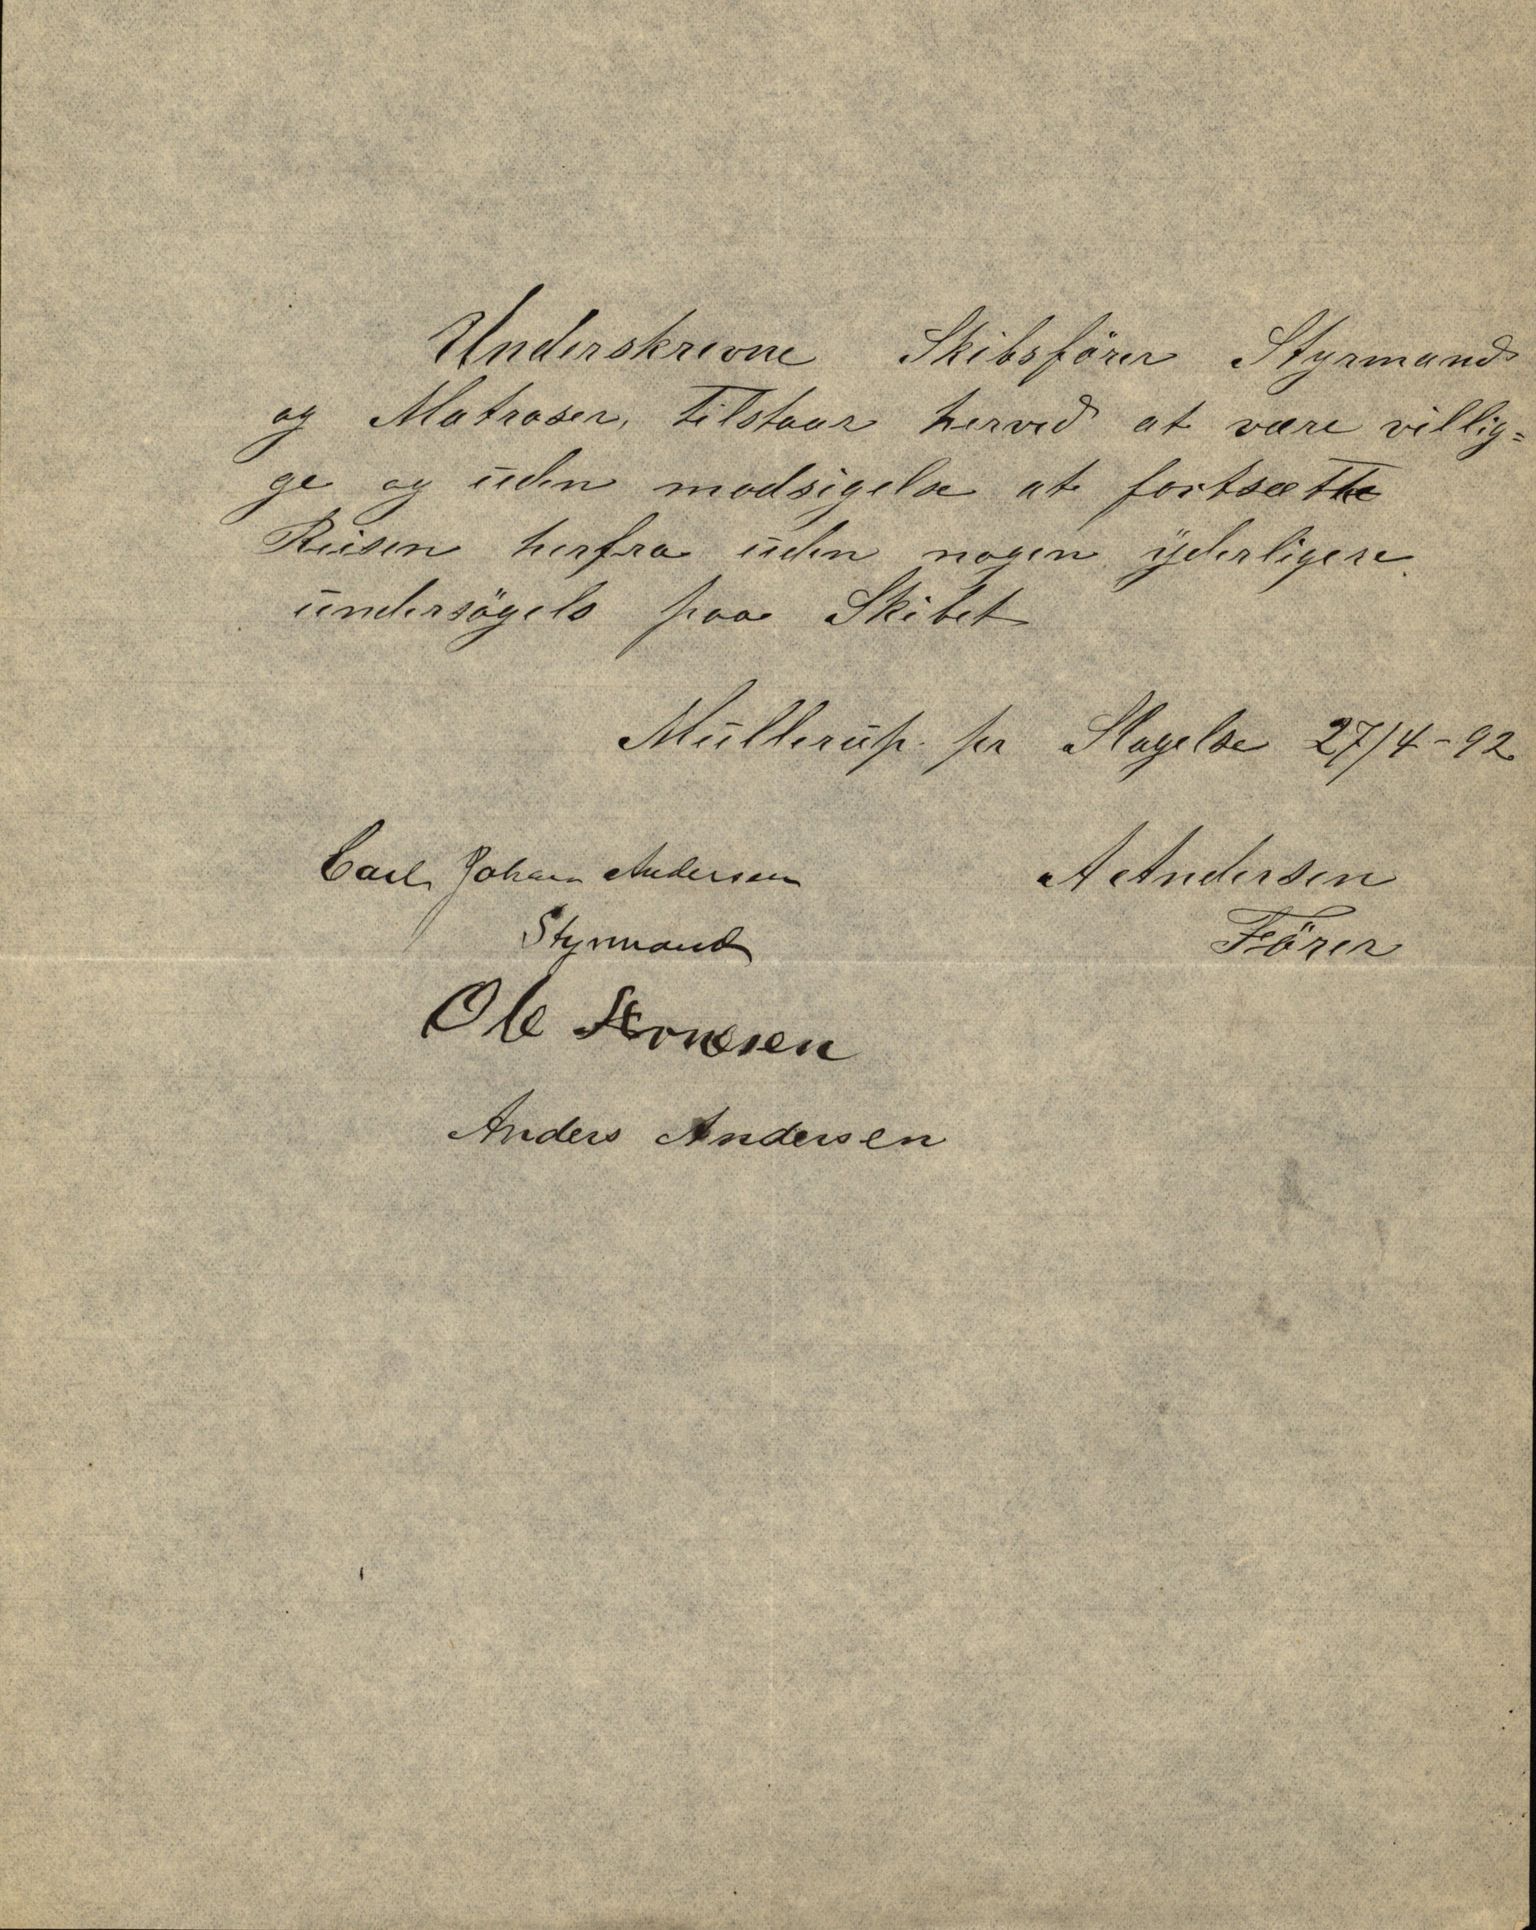 Underskrevne Skibsförer Styrmand
og Matroser, tilstaar herved at være villig=
ge og uden modsigelse at fortsætte
Reisen herfra uden nogen yderligere
undersögels paa Skibet
Mullerup pr Slagelse 27/4-92
Carl Johan Andersen A Andersen
Styrmand Förer
Ole
Anders Andersen